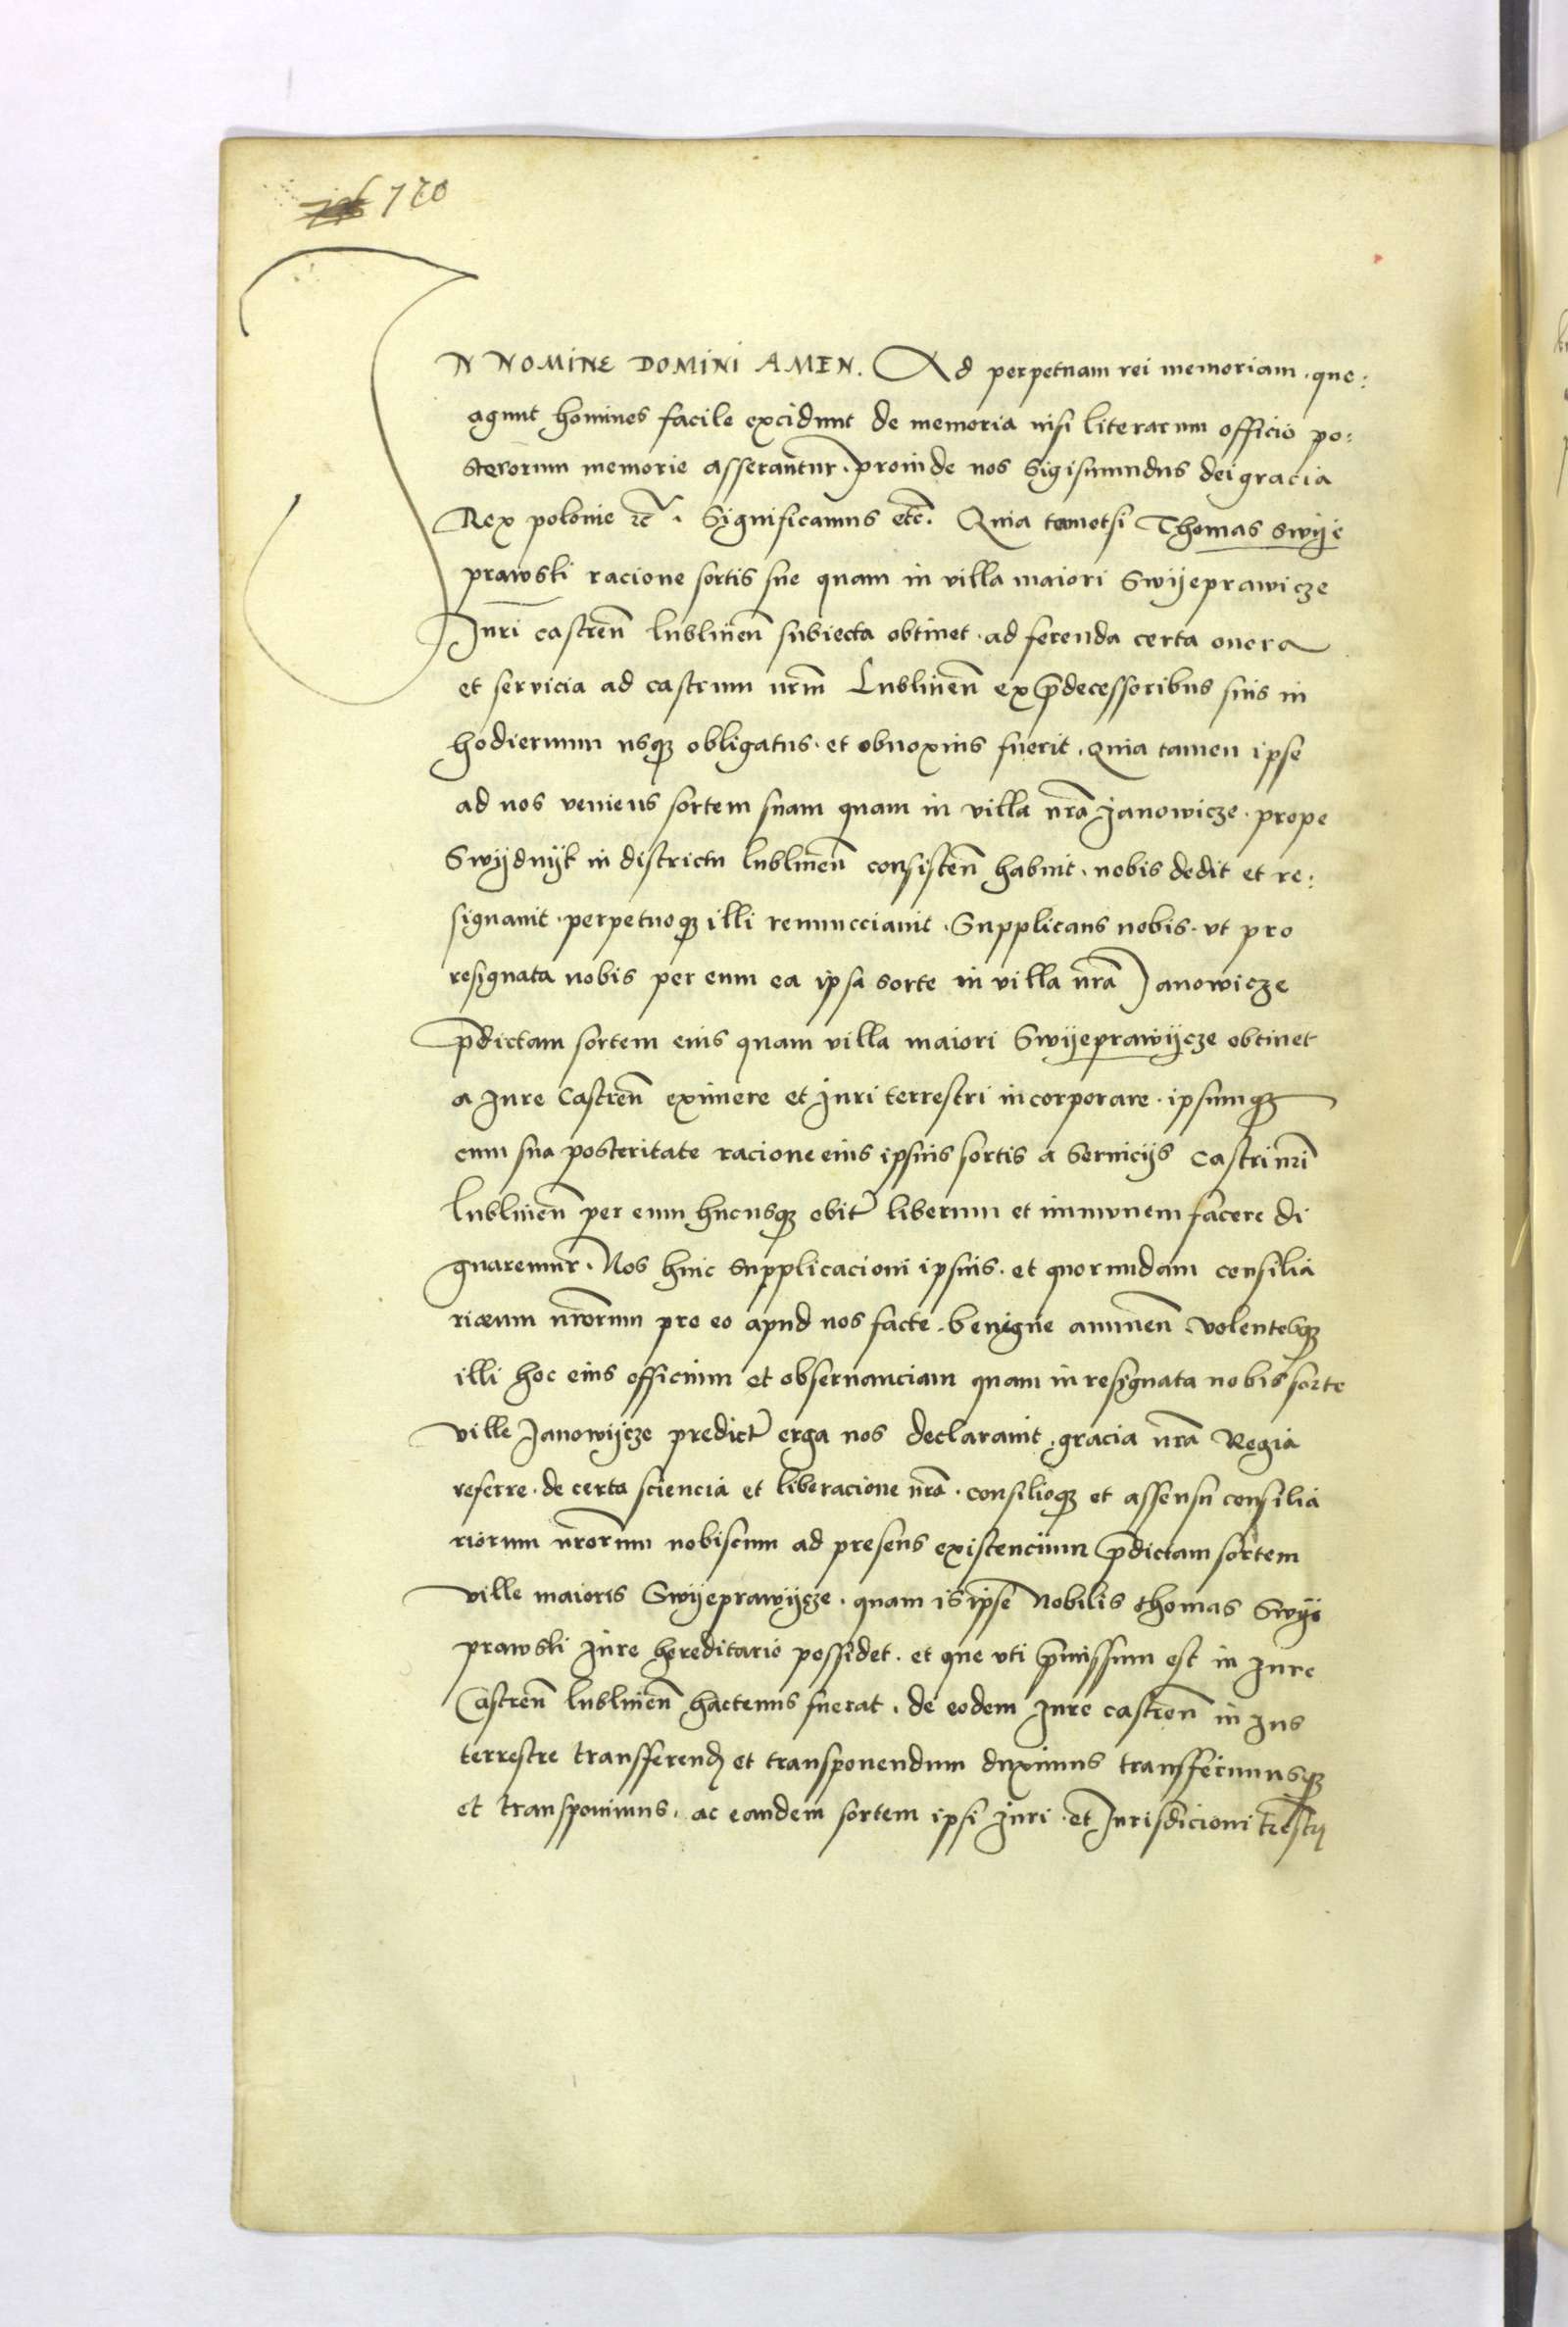 170
IN NOMINE DOMINI AMEN. Ad perpetuam rei memoriam. que:
agunt homines facile excidunt de memoria nisi literarum officio po:
sterorum memorie asserantur. proinde nos Sigismundus dei gracia
Rex polonie ꝛc̄. Significamus etc̄. Quia tametsi Thomas Swije
prawski racione sortis sue quam in villa maiori Swijeprawicze
Juri castren̄ lublinen̄ subiecta obtinet. ad ferenda certa onera
et servicia ad castrum nr̄m Lublinen̄ ex p̄decessoribus suis in
hodiernum usqꝫ obligatus. et obnoxius fuerit. quia tamen ipse
ad nos veniens sortem suam quam in villa nr̄a Janowicze. prope
Swijdnijk in districtu lublinen̄ consisten̄ habuit. nobis dedit et re:
signavit. perpetuoqꝫ illi renuncciavit. Supplicans nobis. vt pro
resignata nobis per eum ea ipsa sorte in villa nr̄a Janowicze
p̄dictam sortem eius quam villa maiori Swijeprawijcze obtinet
a Jure Castren̄ eximere et Juri terrestri incorporare. ipsumqꝫ
cum sua posteritate racione eius ipsius sortis a Serviciis Castri nr̄i
lublinen̄ per eum hucusqꝫ obit̄ liberum et immunem facere di
gnaremur. Nos huic supplicacioni ipsius. et quorundam consilia
riorum nr̄orum pro eo apud nos facte. benigne annuen̄ volentesqꝫ
illi hoc eius officium et observanciam quam in resignata nobis sorte
ville Janowijcze predict̄ erga nos declaravit. gracia nr̄a Regia
referre. de certa sciencia et liberacione nr̄a. consilioqꝫ et assensu consilia
riorum nr̄orum nobiscum ad presens existencium p̄dictam sortem
ville maioris Swijeprawijcze. quam is ip̄se Nobilis thomas Swije
prawski Jure hereditario possidet. et que vti p̄missum est in Jure
Castren̄ lublinen̄ hactenus fuerat. de eodem Jure castren̄ in Jus
terrestre transferend̄ et transponendum duximus transferimusqꝫ
et transponimus. ac eandem sortem ipsi Juri. et Jurisdicioni tr̄estri